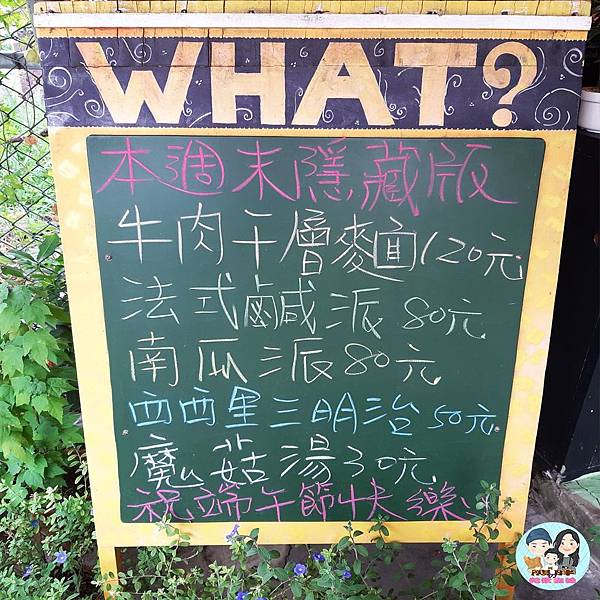 WHAT?
本週末隱藏版
牛肉千層麵120元
法式鹹派 80元
南瓜派80元
西西里三明治 50元
魔菇湯30元
祝端午節快樂